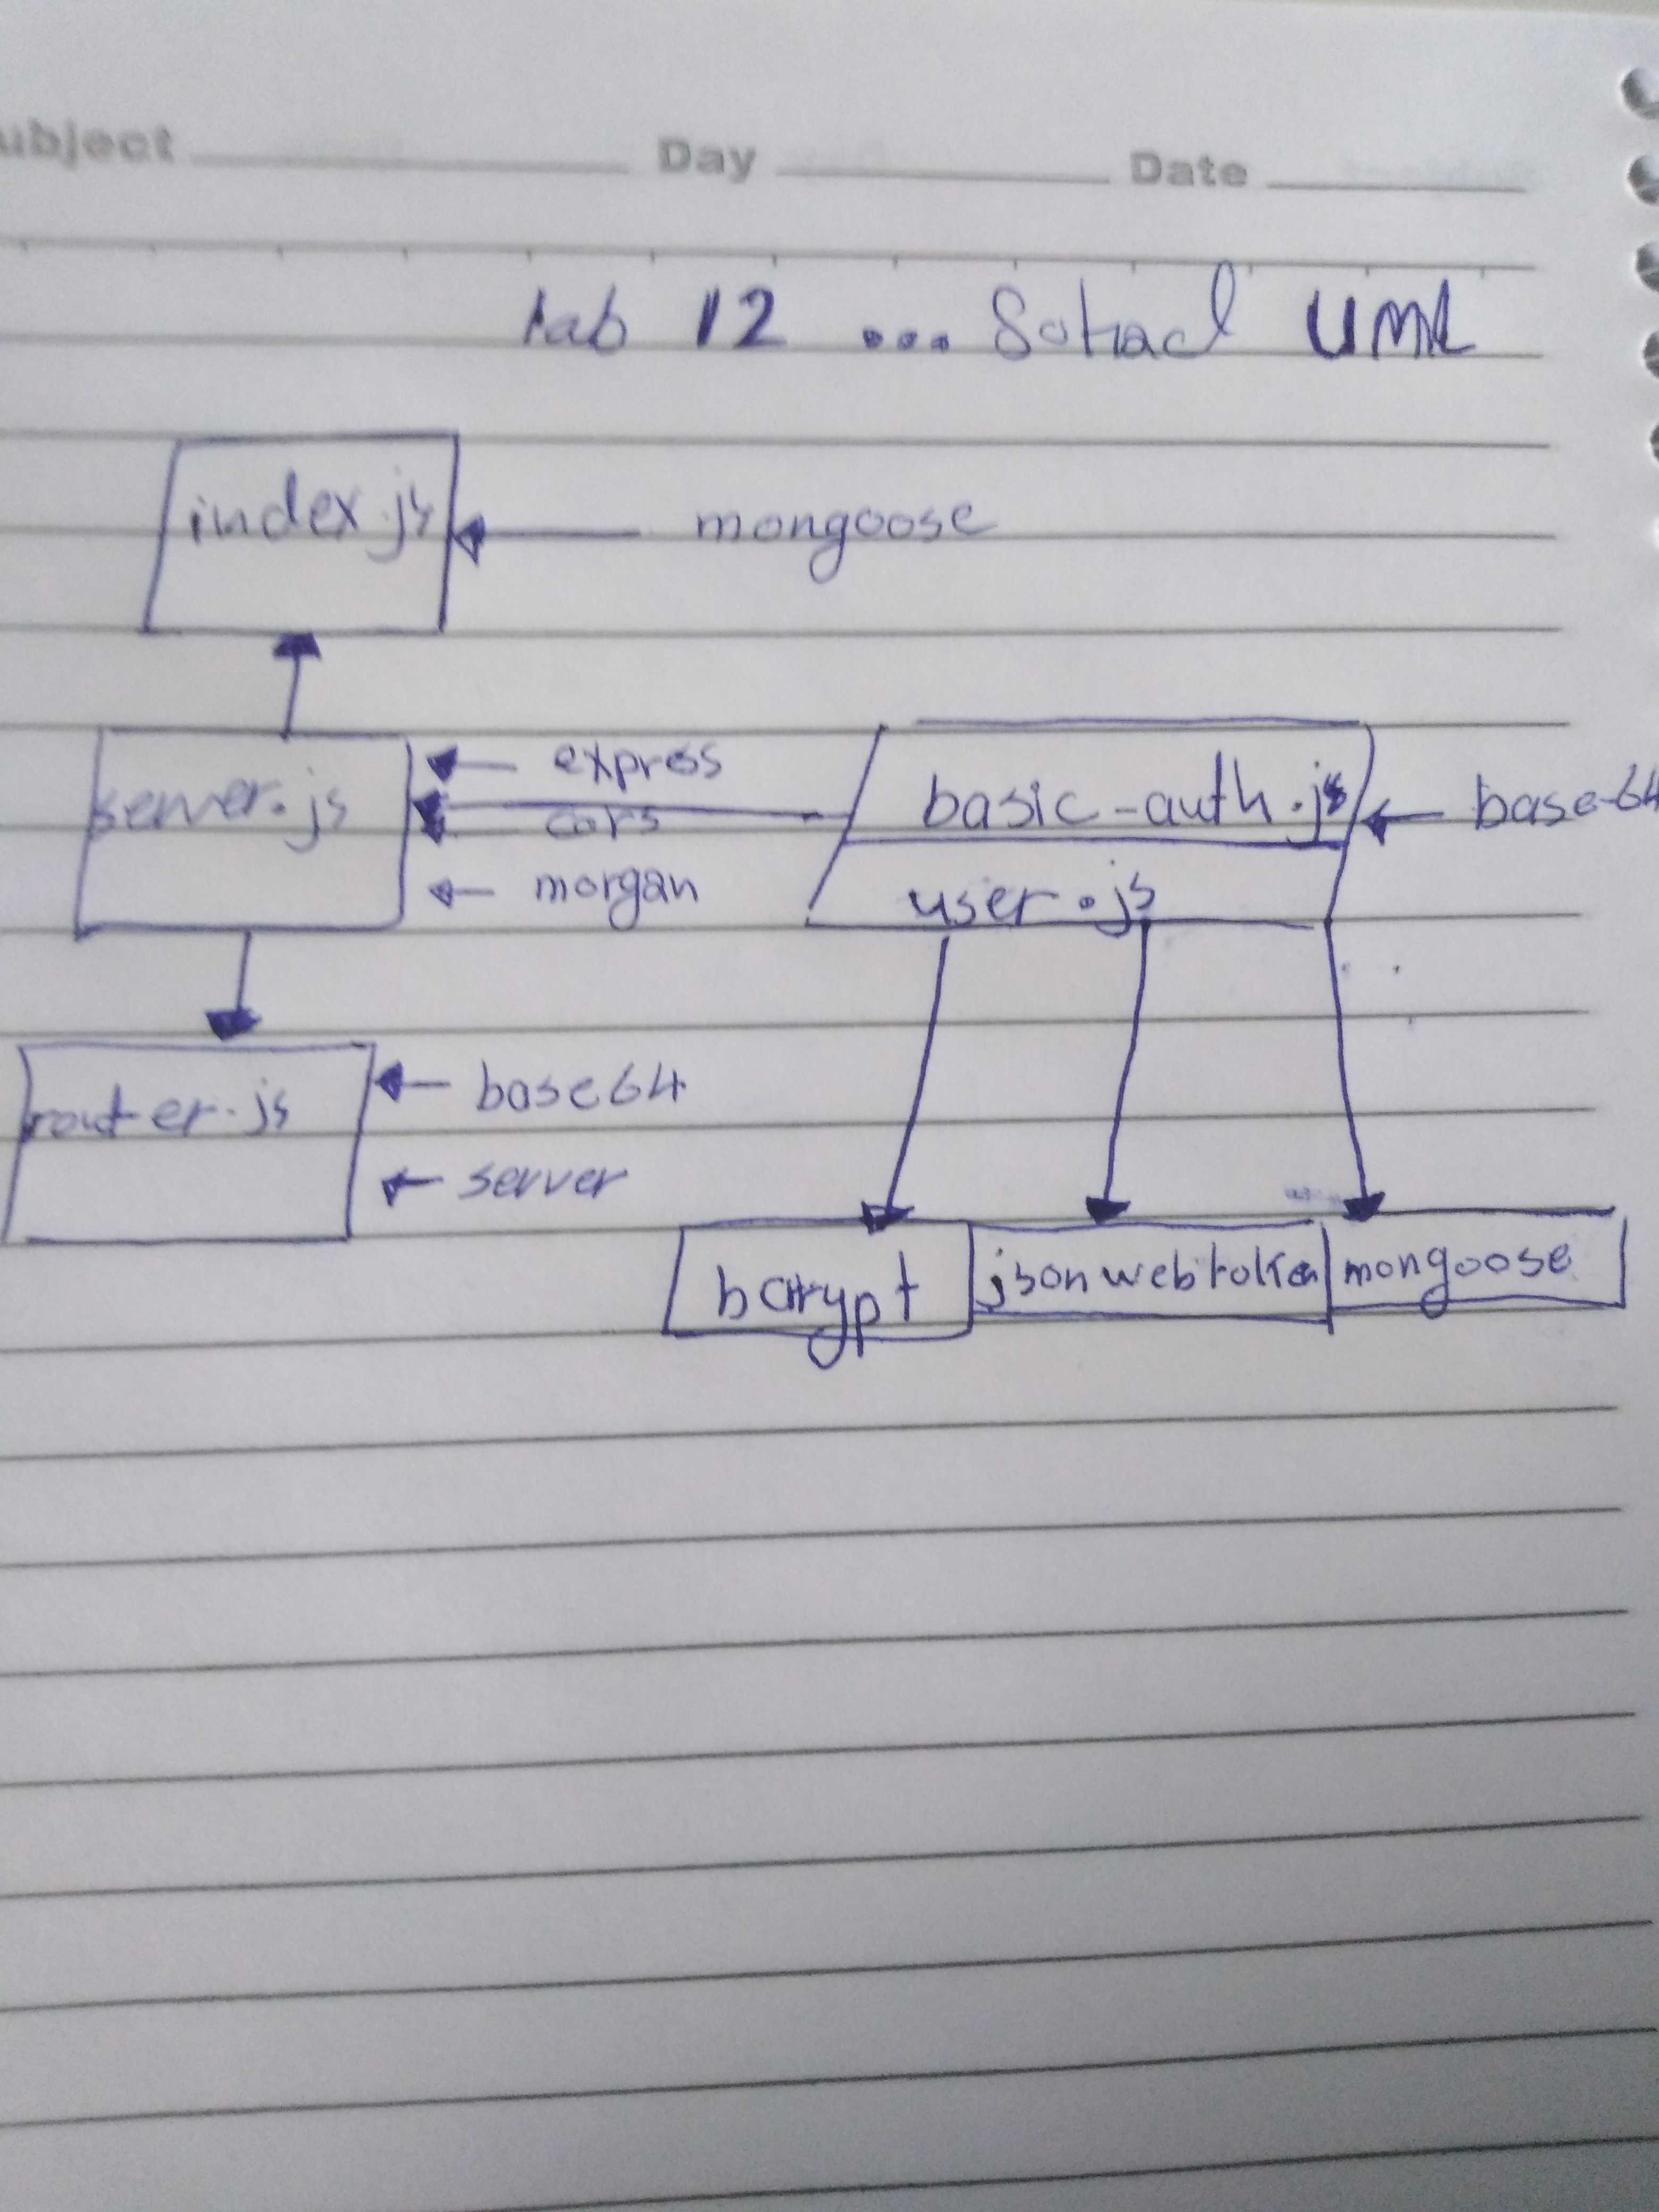 ubject Day Date
Lab 12 ... Sohad UML
index.js mongoose
server.js express basic-auth.js base-64
cors
morgan user.js
router.js base64
server
bcrypt jsonwebtoken mongoose